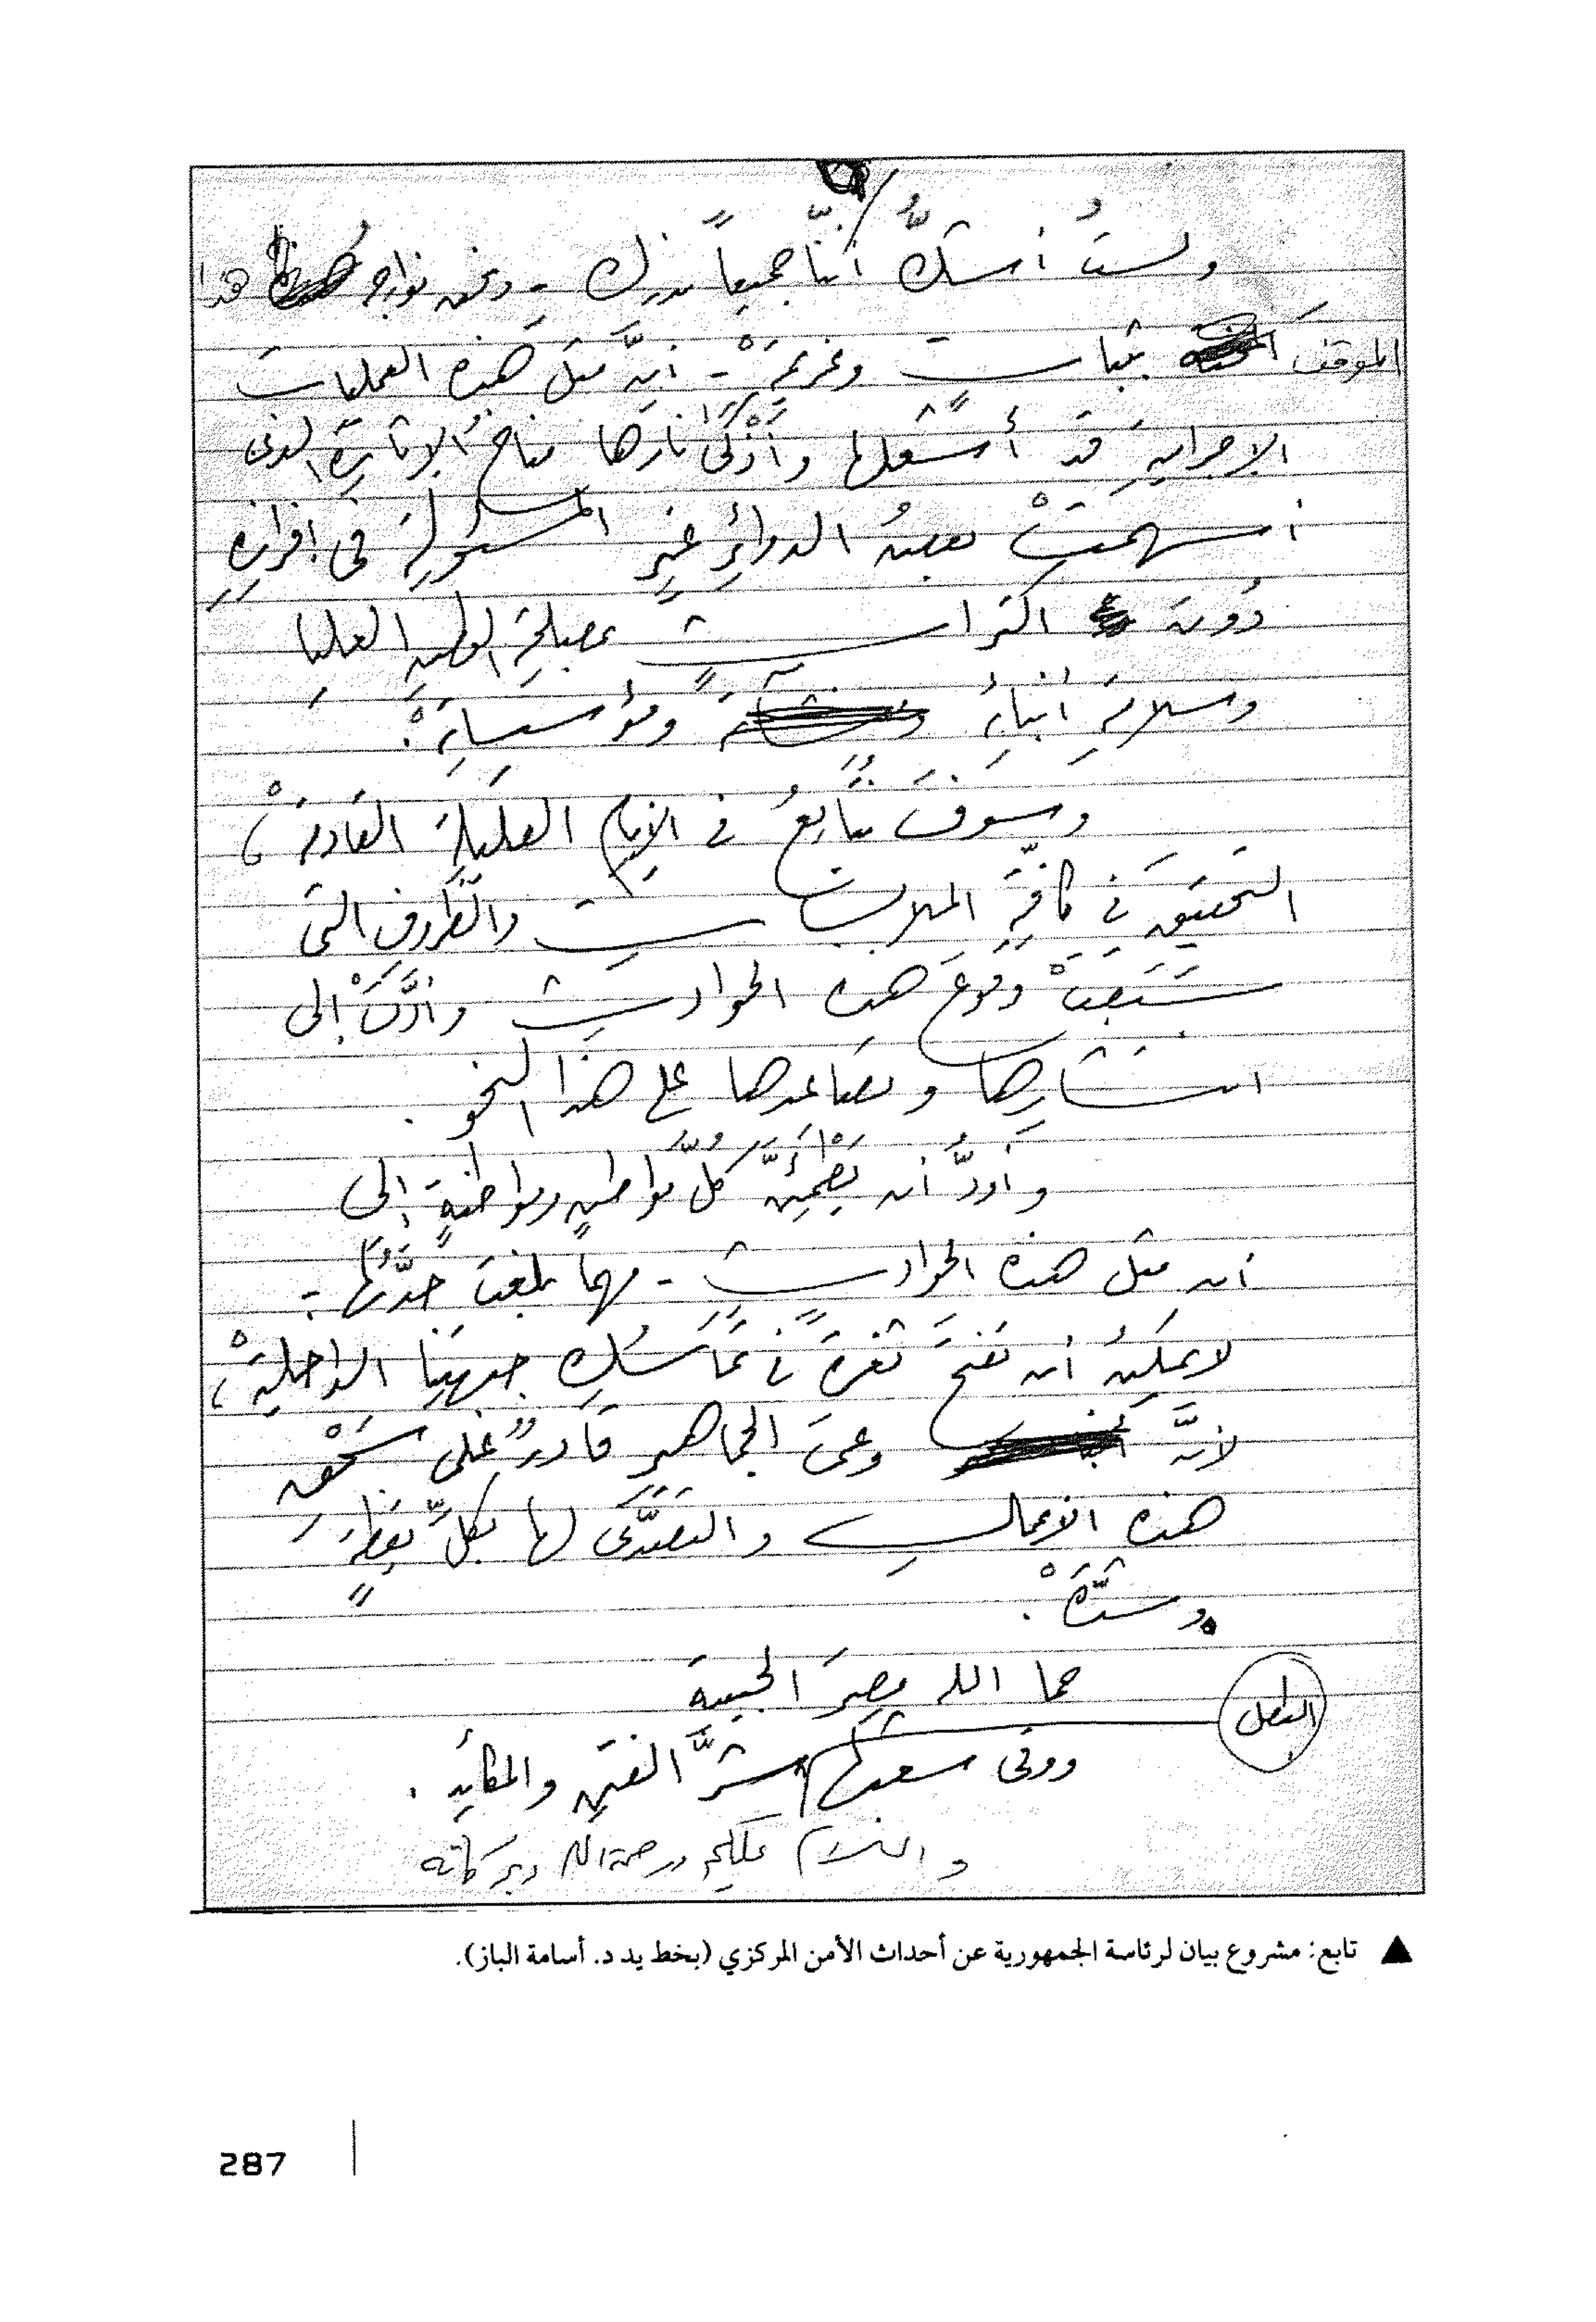 ولستُ أشكُّ أنّنا جميعاً ندرك - ونحن نواجه هذا
الموقفَ بثباتٍ وعزيمةْ - أنَّ مثل هذه العمليات
الإجراميةِ قد أشعلها وأذْكَى نارَها مناخُ الإثارةِ الذى
أسهمتْ بعضُ الدوائرِ غيرِ المسئولةِ فى إفرازِهِ
دُونَ اكتراثٍ بمصلحةِ الوطنِ العليا
وسلامةِ أبنائِهِ ومؤسساتِهْ.
وسوفَ نتابعُ فى الأيامِ القليلةِ القادمةْ،
التحقيقَ فى كافّةِ الملابساتِ والظّروفِ التى
سَبَّبَتْ وقوعَ هذه الحوادثِ وأدَّتْ إلى
انتشارِها وتصاعدها على هذا النحو.
وأودُّ أن يَطْمَئِنَّ كلُّ مواطنٍ ومواطنةٍ إلى
أن مثل هذه الحوادثِ - مهما بلغت حدَّتُها -
لا يمكنُ أن تفتحَ ثغرةً فى تماسُكِ جبهتِنا الداخليةْ،
لأنَّ وعىَ الجماهيرِ قادرٌ على سَحْقِ
هذه الأعمالِ والتصدِّى لها بكلِّ يقظةٍ
وشدّةْ.
حما الله مصرَ الحبيبة
ووقى شعبَها شرَّ الفتنِ والمكائدِ.
والسلام عليكم ورحمة الله وبركاته
▲ تابع: مشروع بيان لرئاسة الجمهورية عن أحداث الأمن المركزي (بخط يد د. أسامة الباز).
287